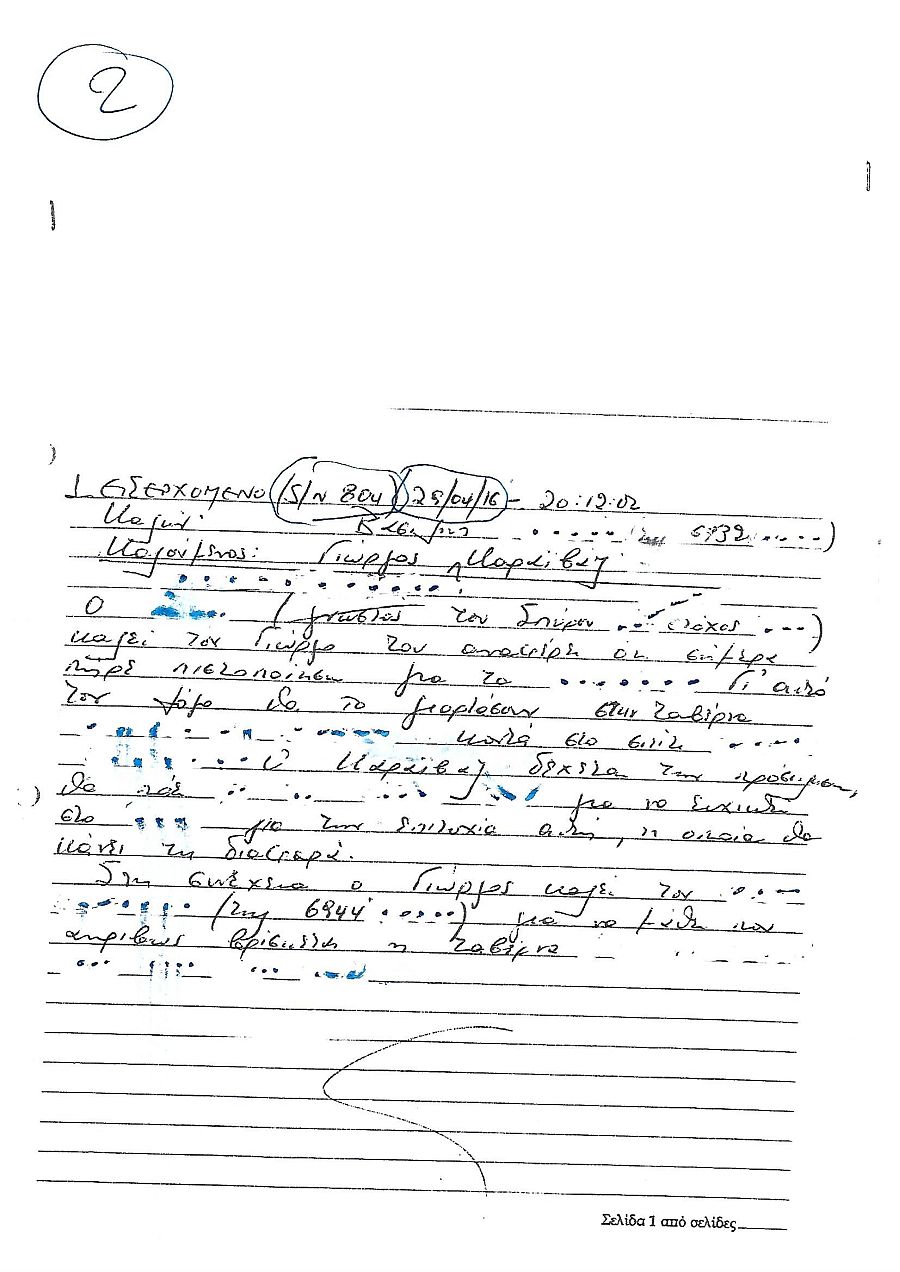 2
1 ΕΙΣΕΡΧΟΜΕΝΟ (S/N 804) (25/04/16 - 20:12:02
Καλών: (της 6932 )
Καλούμενος: Γιώργος Καραϊβάζ
Ο (γνωστός του Σπύρου στόχος )
καλεί τον Γιώργο του αναφέρει ότι σήμερα
πήρε πιστοποίηση για το Γι' αυτό
τον λόγο θα το γιορτάσουν στην ταβέρνα
κοντά στο σπίτι
Ο Καραϊβάζ δέχεται την πρόσκληση,
θα πάει για να ευχηθεί
στο για την επιτυχία αυτή, η οποία θα
κάνει τη διατριβή.
Στη συνέχεια ο Γιώργος καλεί τον
(της 6944 ) για να μάθει που
ακριβώς βρίσκεται η ταβέρνα
Σελίδα 1 από σελίδες